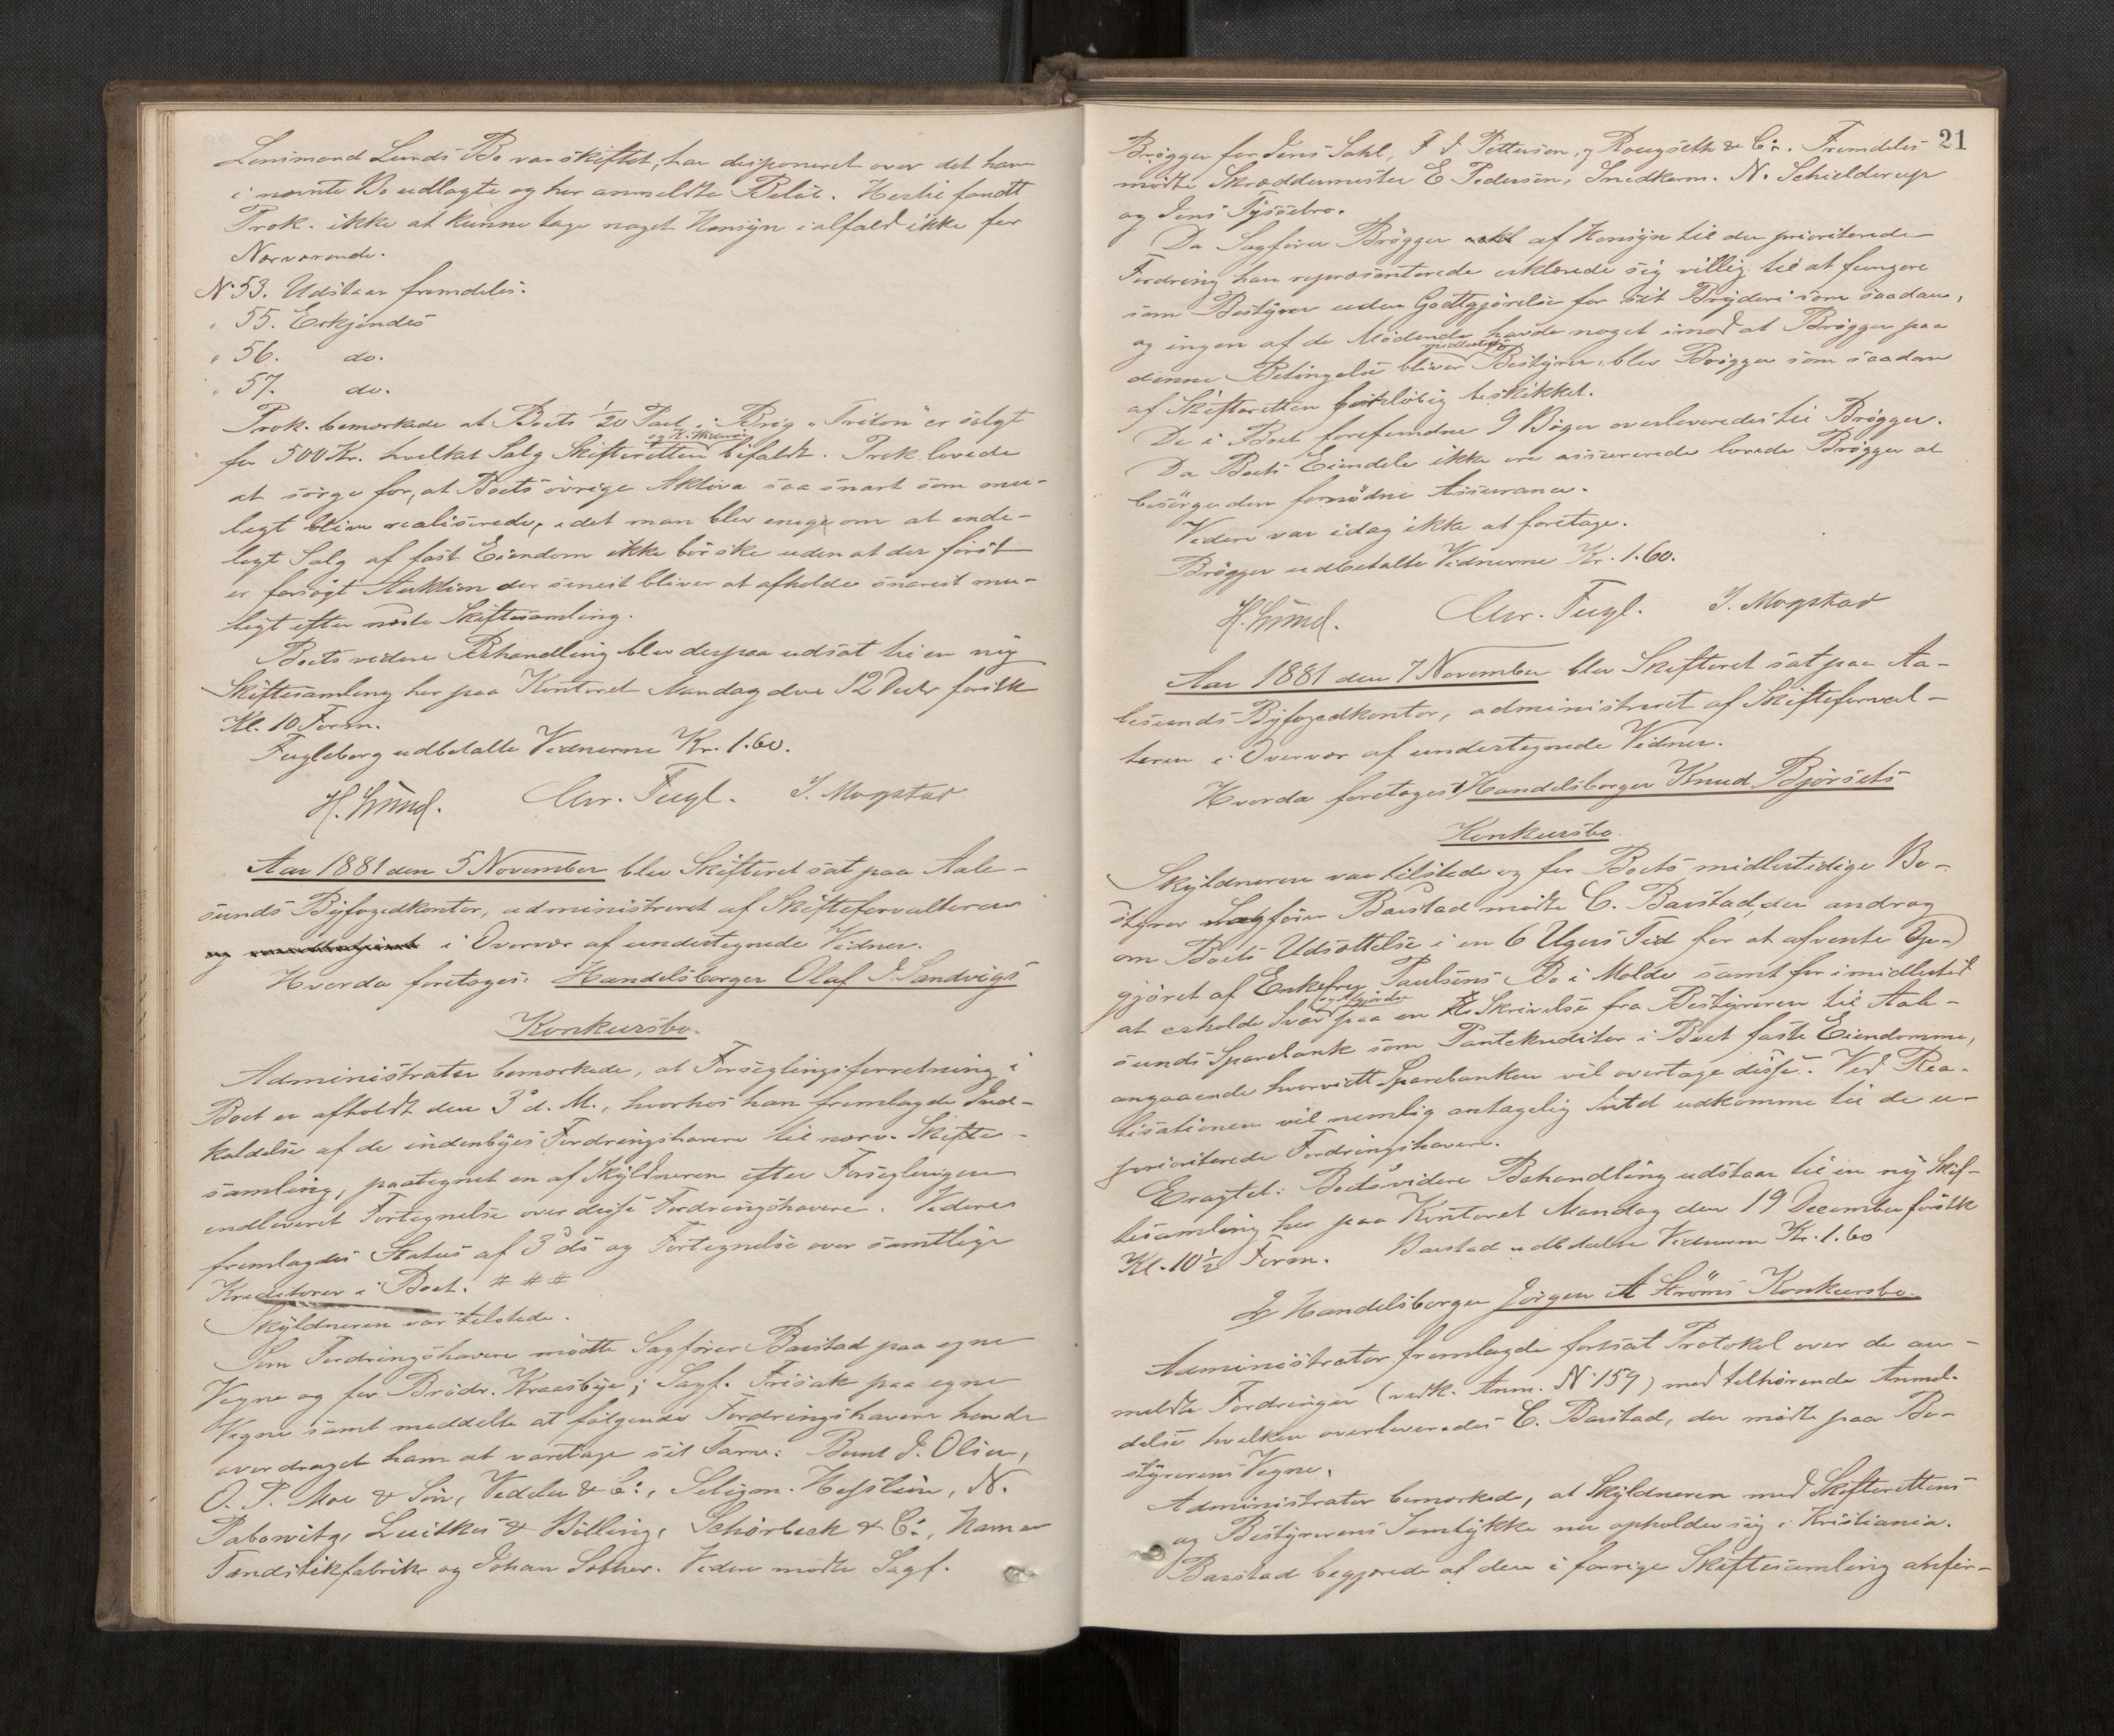 Lensmand Lunds Bo var skiftet, har disponeret over det ham
i nævnte Bo udlagte og her anmeldte Beløb. Hertil fandt
Prok. ikke at kunne tage noget Hensyn ialfald ikke for
Nærværende.
No 53. Udstaar fremdeles.
" 55. Erkjendes
" 56. do.
" 57. do.
Prok. bemærkede at Boets 1/20 Part i Brig "Triton" er solgt
for 500 Kr. hvilket Salg Skifteretten bifaldt. Prok. lovede
at sørge for, at Boets øvrige Aktiva saa snart som mu-
ligt blive realiserede, idet man blev enige om at ende-
ligt Salg af fast Eiendom ikke bør ske uden at der først
er forsøgt Auktion der senest bliver at afholde snarest mu-
ligt efter næste Skiftesamling.
Boets videre Behandling blev derpaa udsat til en ny
Skiftesamling her paa Kontoret Mandag den 12 Decbr førstk
Kl. 10 Form.
Fugleberg udbetalte Vidnerne Kr. 1.60.
H. Lund. Chr. Fugl. I. Mogstad
Aar 1881 den 5 November blev Skifteret sat paa Aale-
sunds Byfogedkontor, administreret af Skifteforvalteren
i Overvær af undertegnede Vidner.
Hvorda foretoges: Handelsborger Olaf J. Sandvigs
Konkursbo.
Administrator bemærkede, at Forseglingsforretning i
Boet er afholdt den 3 d. M., hvorhos han fremlagde Ind-
kaldelse af de indenbyes Fordringshavere til nærv. Skifte-
samling, paategnet en af Skyldneren efter Forseglingen
indleveret Fortegnelse over disse Fordringshavere. Videre
fremlagdes Status af 3 ds og Fortegnelse over samtlige
Kreditorer i Boet. # # #
Skyldneren var tilstede.
Som Fordringshavere mødte Sagfører Barstad paa egne
Vegne og for Brødr. Kraasbye; Sagf. Frisak paa egne
Vegne samt meddelte at følgende Fordringshavere havde
overdraget ham at varetage sit Tarv: Bernt J. Olsen,
O. P. Moe & Søn, Vedeler & Co, Seligm. Hesslein, N.
Pabowitz, Luitkes & Bølling, Schørbeck & Co, Hamar
Tændstikfabrik og Johan Sother. Videre mødte Sagf.
21
Brøgger for Jens Sahl, F J Petterson, og Rougseth & Co. Fremdeles
mødte Skræddermester E Pedersen, Snedkerm. N. Schielderup
og Jens Tyssebro.
Da Sagfører Brøgger af Hensyn til den prioriterede
Fordring han repræsenterede erklærede sig villig til at fungere
som Bestyrer uden Godtgjørelse for sit Bryderi som saadan,
og ingen af de Mødende havde noget imod at Brøgger paa
denne Betingelse bliver midlertidig Bestyrer, blev Brøgger som saadan
af Skifteretten foreløbig beskikket.
De i Boet forefundne 9 Bøger overleveredes til Brøgger.
Da Boets Eiendele ikke ere assurerede lovede Brøgger at
besørge den fornødne Assurance.
Videre var idag ikke at foretage.
Brøgger udbetalte Vidnerne Kr. 1.60.
H. Lund. Chr. Fugl. I. Mogstad
Aar 1881 den 7 November blev Skifteret sat paa Aa-
lesunds Byfogedkontor, administreret af Skifteforval-
teren i Overvær af undertegnede Vidner.
Hvorda foretoges: 1/ Handelsborger Knud Bjørsets
Konkursbo.
Skyldneren var tilstede og for Boets midlertidige Be-
styrer Sagfører Barstad mødte C. Barstad, der androg
om Boets Udsættelse i en 6 Ugers Tid for at afvente Op-
gjøret af Enkefru Paulsens Bo i Molde samt for imidlertid
at erholde Svar paa en Skrivelse fra Bestyreren til Aale-
sunds Sparebank som Pantekreditor i Boet faste Eiendomme,
angaaende hvorvidt Sparebanken vil overtage disse. Ved Rea-
lisationen vil nemlig antagelig Intet udkomme til de u-
prioriterede Fordringshavere.
Eragtet: Boets videre Behandling udstaar til en ny Skif-
tesamling her paa Kontoret Mandag den 19 December førstk
Kl. 10 1/2 Form. Barstad udbetalte Vidnerne Kr. 1.60
2/ Handelsborger Jørgen A Strøms Konkursbo.
Administrator fremlagde fortsat Protokol over de an-
meldte Fordringer (vedk. Anm. No 159) med tilhørende Anmel-
delse hvilken overleveredes C. Barstad, der mødte paa Be-
styrerens Vegne.
Administrator bemærkede, at Skyldneren med Skifterettens
og Bestyrerens Samtykke nu opholder sig i Kristiania.
Barstad begjærede af den i forrige Skiftesamling anfør-